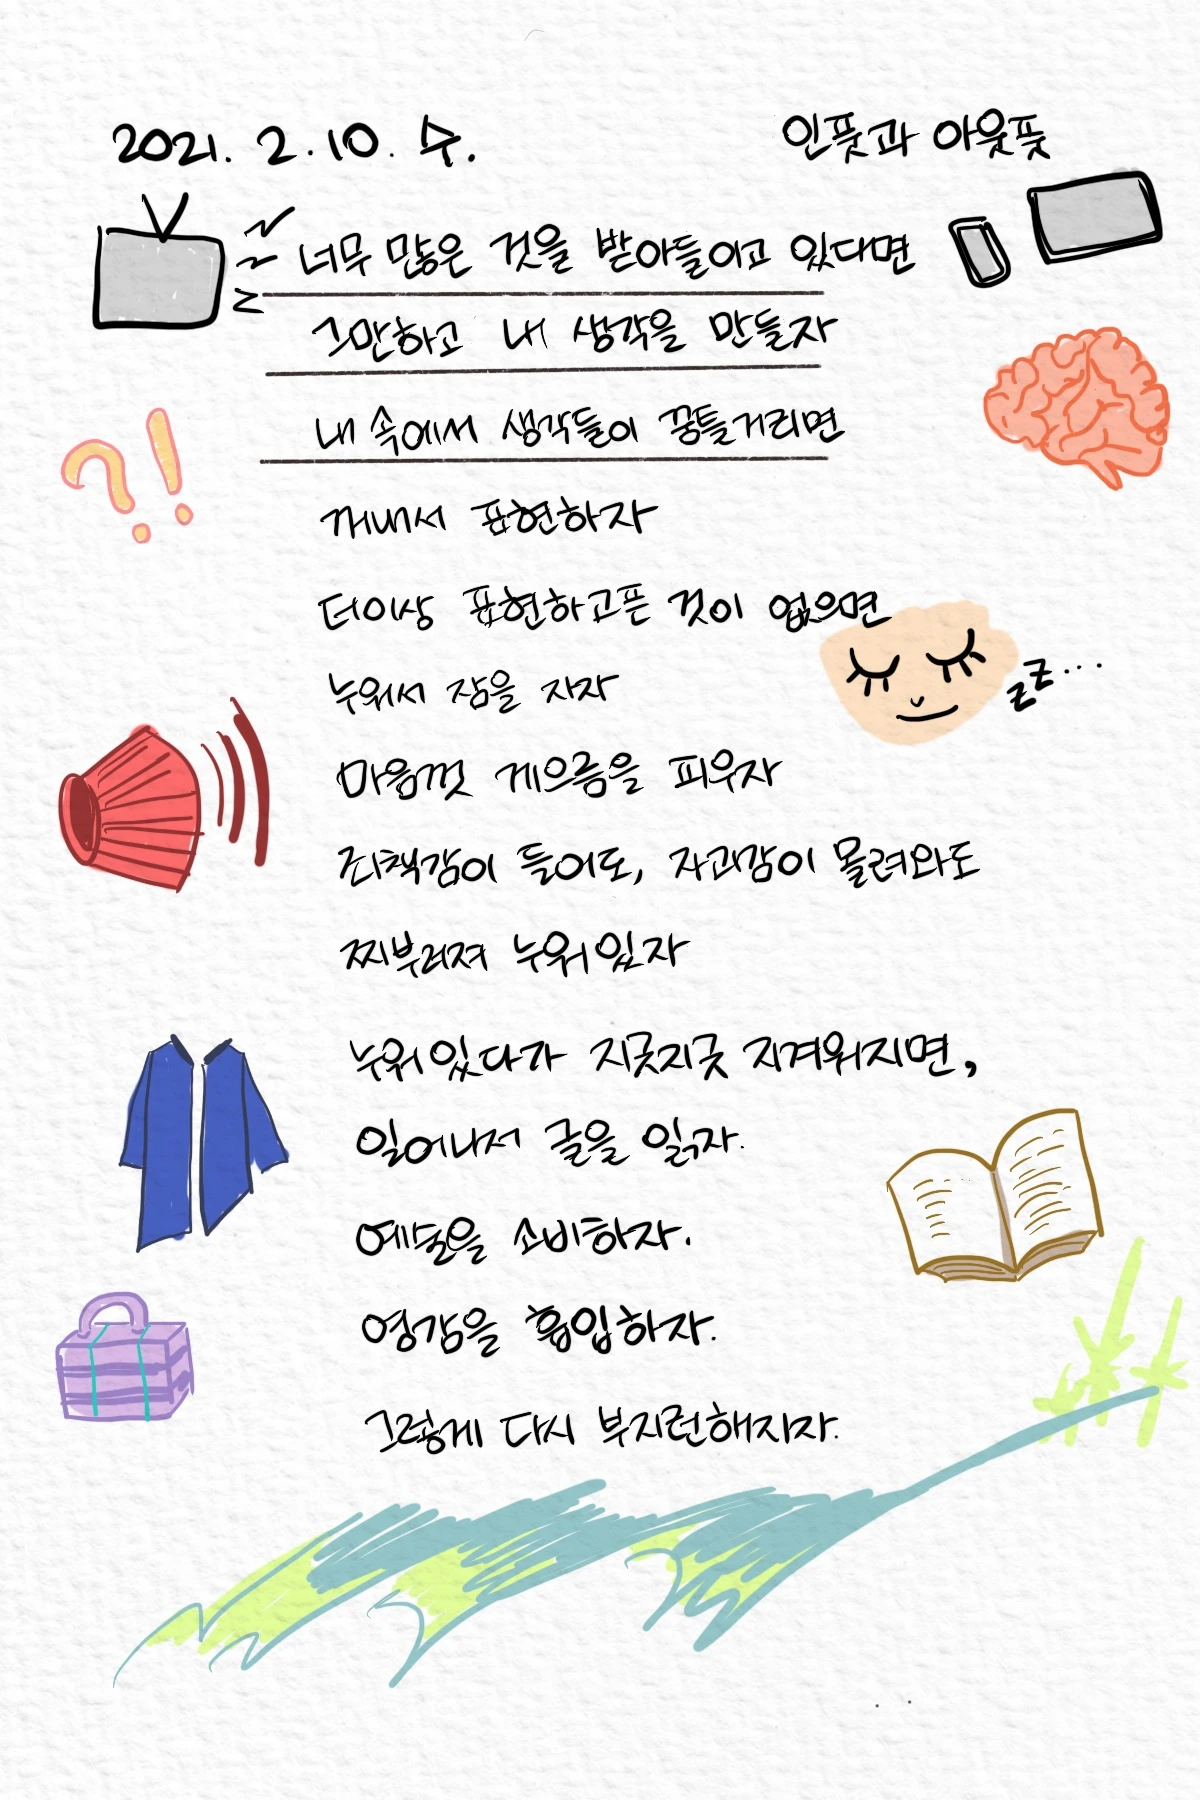 2021. 2. 10. 수.
인풋과 아웃풋
너무 많은 것을 받아들이고 있다면
그만하고 내 생각을 만들자
내 속에서 생각들이 꿈틀거리면
꺼내서 표현하자
더이상 표현하고픈 것이 없으면
누워서 잠을 자자
zz...
마음껏 게으름을 피우자
죄책감이 들어도, 자괴감이 몰려와도
찌부러져 누워있자
누워있다가 지긋지긋 지겨워지면,
일어나서 글을 읽자.
예술을 소비하자.
영감을 흡입하자.
그렇게 다시 부지런해지자.